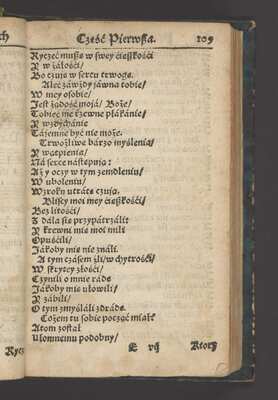 Część Pierwsza. 109
Ryczeć muszę w swey ciężkości
Y w żałości/
Bo czuję w sercu trwogę.
Alec zawżdy jáwna tobie/
W mey osobie/
Jest żądość mojá/ Boże/
Tobiec me rzewne płákánie/
Y wzdychánie
Tájemne być nie może.
Trwożliwe bárzo myślenia/
Y wątpienia/
Ná serce nástępują:
Aż y oczy w tym zemdleniu/
W uboleniu/
Wzroku utrátę czują.
Bliscy moi mey ciężkości/
Bez litości/
Z dálá się przypátrzáli:
Y krewni mię moi mili
Opuścili/
Jákoby mię nie ználi.
A tym czásem źli/ w chytrości/
W skrytey złości/
Czynili o mnie rádę
Jákoby mię ułowili/
Y zábili/
O tym zmyśláli zdrádę.
Cożem tu sobie począć miáł?
Atom został
Ułomnemu podobny/
E vij Ktory